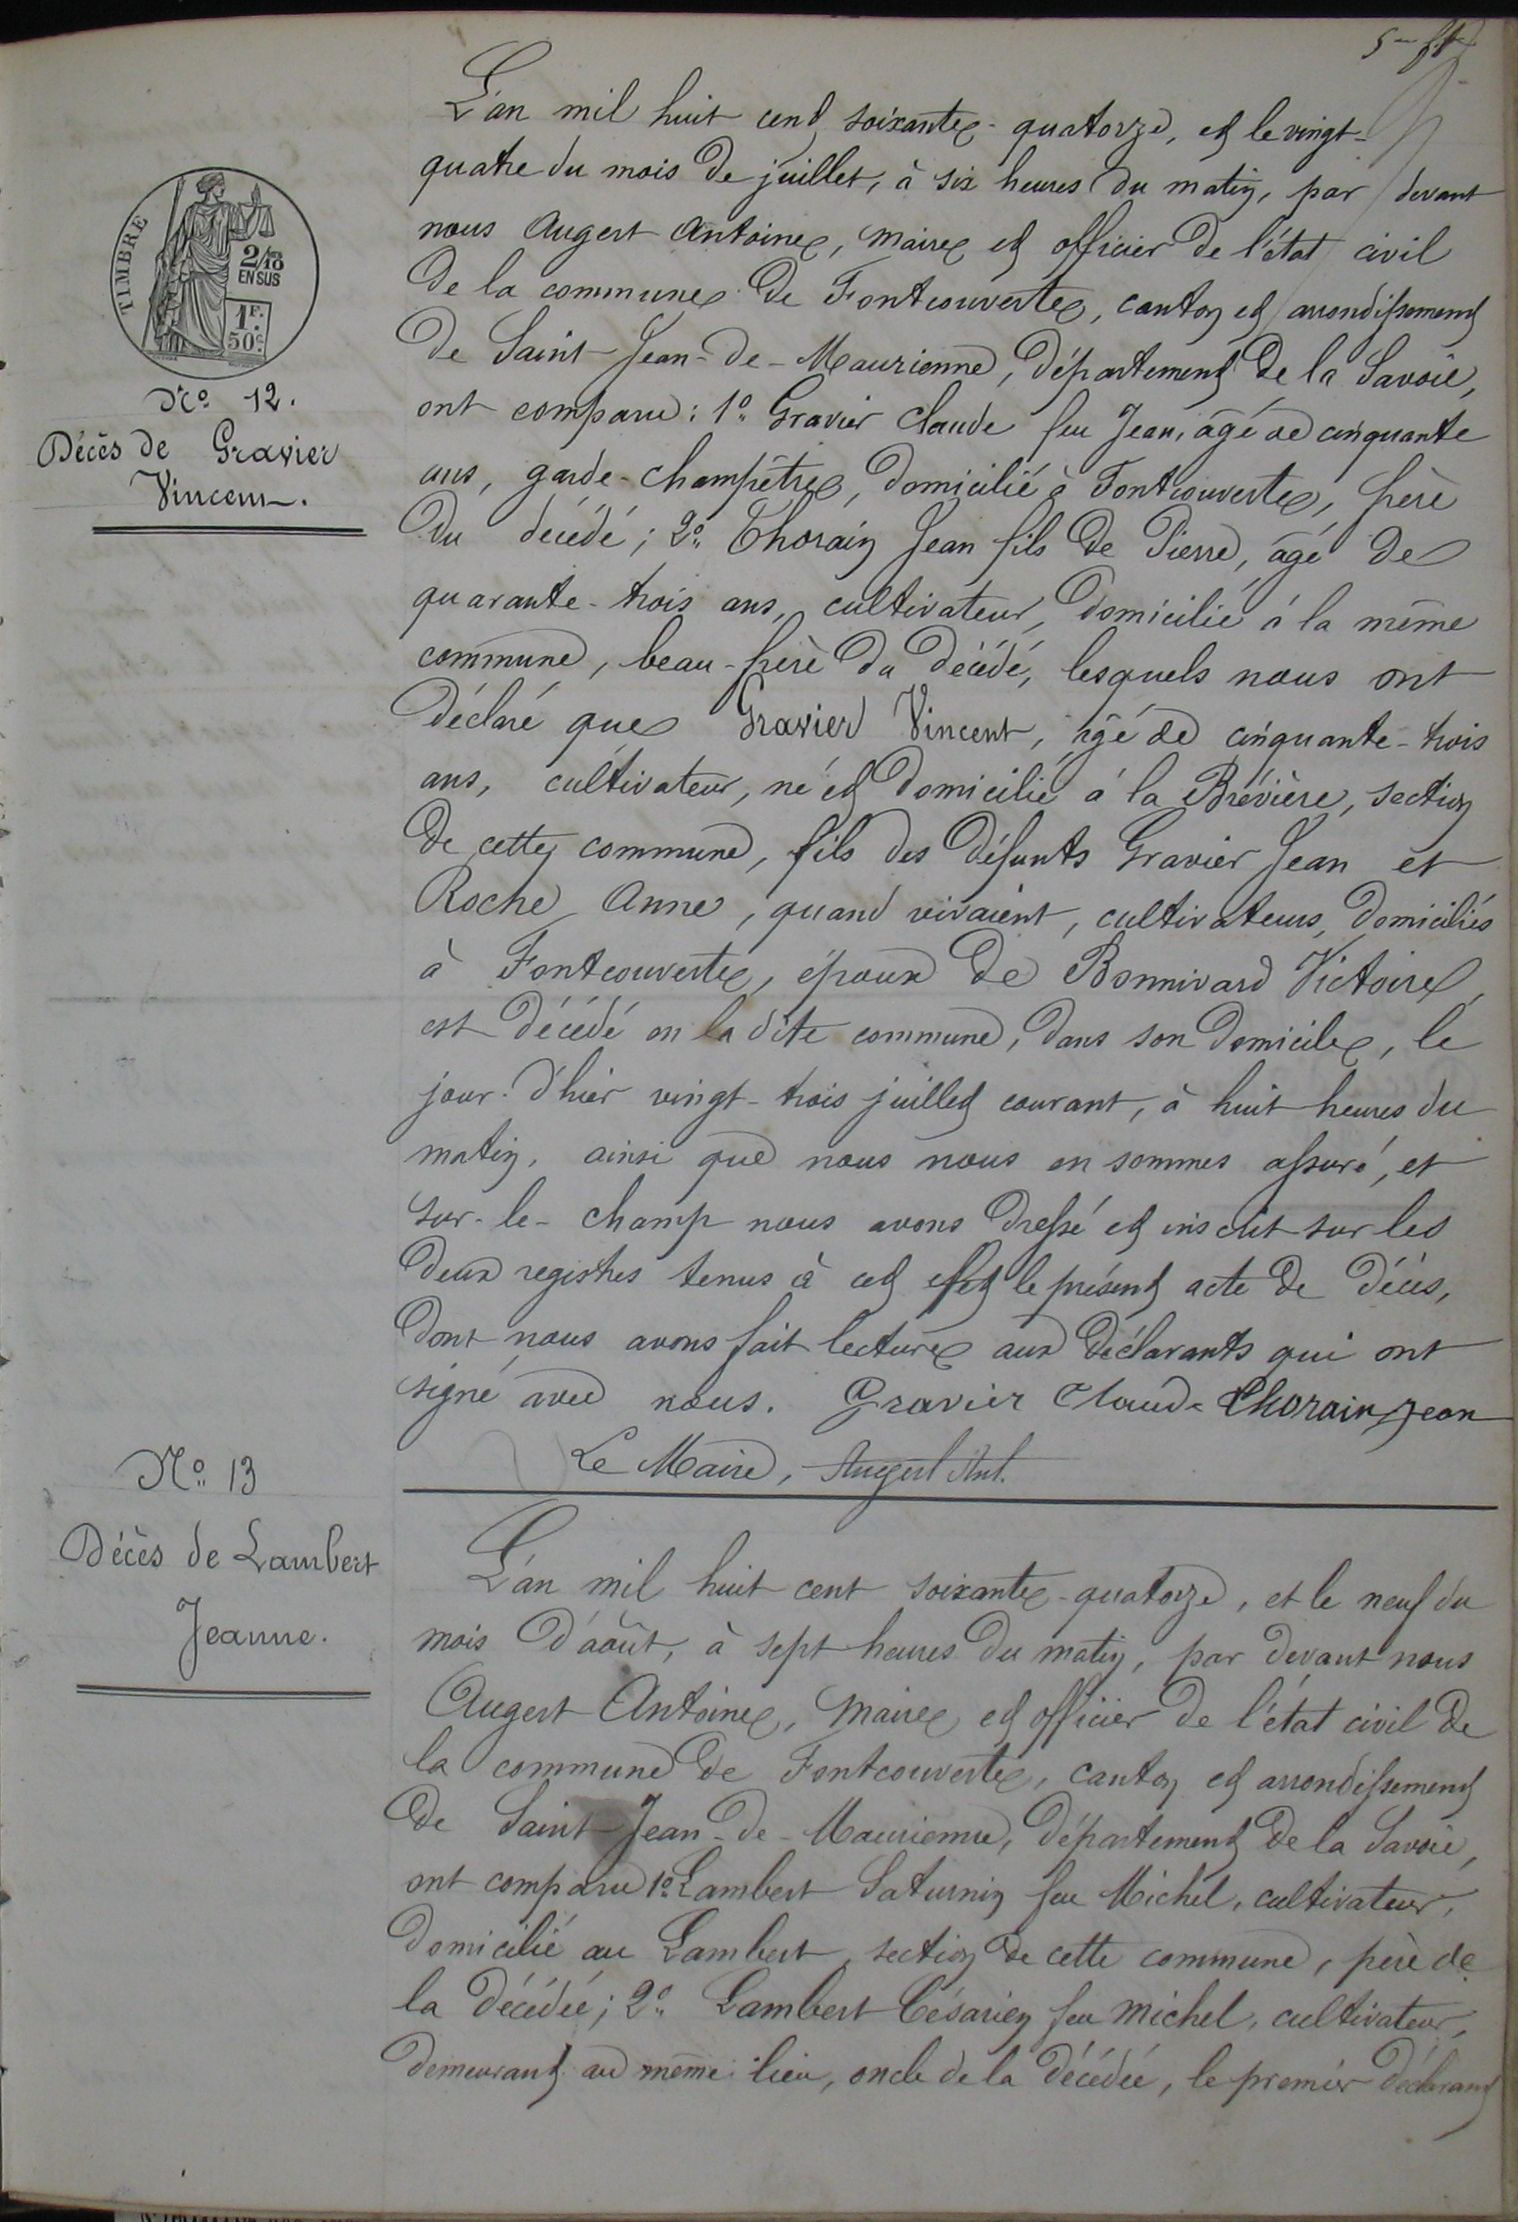 5me ft
TIMBRE
2/10 EN SUS
1F. 50c.
No. 12.
Décès de Gravier
Vincent.
L'an mil huit cent soixante-quatorze, et le vingt-
quatre du mois de juillet, à six heures du matin, par devant
nous Augert Antoine, Maire et officier de l'état civil
de la commune de Fontcouverte, canton et arrondissement
de Saint-Jean-de-Maurienne, département de la Savoie,
ont comparu: 1o. Gravier Claude feu Jean, âgé de cinquante
ans, garde-champêtre, domicilié à Fontcouverte, frère
du décédé; 2o. Thorain Jean fils de Pierre, âgé de
quarante-trois ans, cultivateur, domicilié à la même
commune, beau-frère du décédé, lesquels nous ont
déclaré que Gravier Vincent, âgé de cinquante-trois
ans, cultivateur, né et domicilié à la Brévière, section
de cette commune, fils des défunts Gravier Jean et
Roche Anne, quand vivaient, cultivateurs, domiciliés
à Fontcouverte, époux de Bonnivard Victoire,
est décédé en la dite commune, dans son domicile, le
jour d'hier vingt-trois juillet courant, à huit heures du
matin, ainsi que nous nous en sommes assuré, et
sur-le-champ nous avons dressé et inscrit sur les
deux registres tenus à cet effet le présent acte de décès,
dont nous avons fait lecture aux déclarants qui ont
signé avec nous. Gravier Claude Thorain Jean
Le Maire, Augert Ant.
No. 13
Décès de Lambert
Jeanne.
L'an mil huit cent soixante-quatorze, et le neuf du
mois d'août, à sept heures du matin, par devant nous
Augert Antoine, Maire et officier de l'état civil de
la commune de Fontcouverte, canton et arrondissement
de Saint-Jean-de-Maurienne, département de la Savoie,
ont comparu 1o. Lambert Saturnin feu Michel, cultivateur,
domicilié au Lambert, section de cette commune, père de
la décédée; 2o. Lambert Césarien feu Michel, cultivateur,
demeurant au même lieu, oncle de la décédée, le premier déclarant